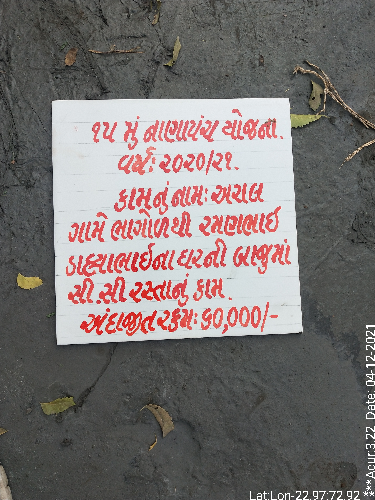 ૧૫ મું નાણાપંચ યોજના.
વર્ષ: ૨૦૨૦/૨૧.
કામનું નામ: અરાલ
ગામે ભાગોળથી રમણભાઈ
ડાહ્યાભાઈના ઘરની બાજુમાં
સી.સી રસ્તાનું કામ.
અંદાજીત રકમ: ૬૦,૦૦૦/-
Lat:Lon-22.97:72.92
***Acur:3.22 Date: 04-12-2021